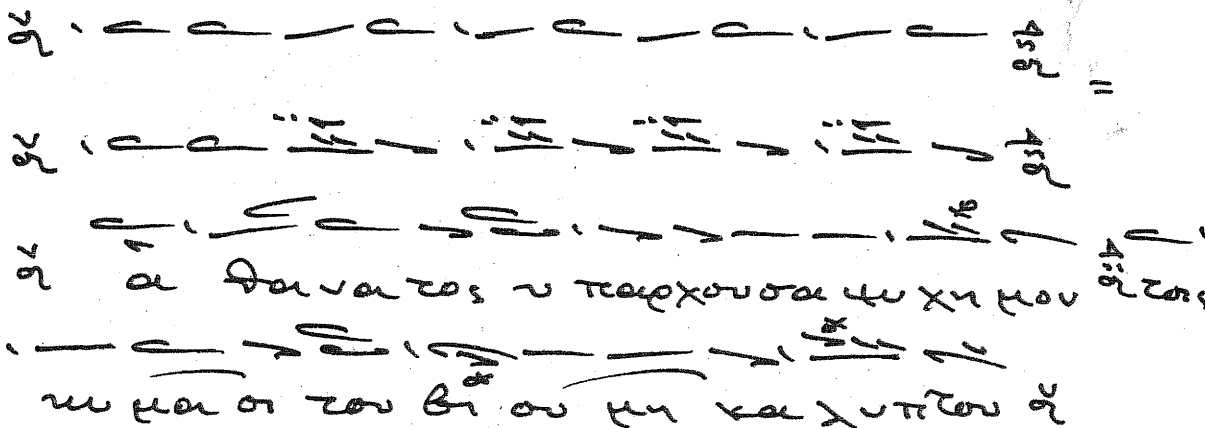 α θα να τος υ παρχουσα ψυ χη μου τοις
κυ μα σι του βι ου μη κα λυπτου